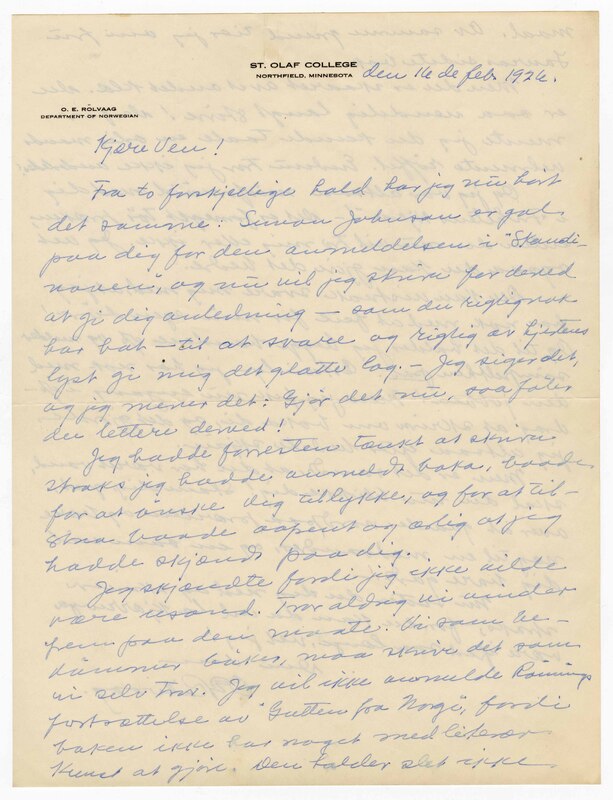 ST. OLAF COLLEGE
NORTHFIELD, MINNESOTA
den 16 de feb. 1926.
O. E. RÖLVAAG
DEPARTMENT OF NORWEGIAN
Kjære Ven!
Fra to forskjellige hold har jeg nu hört
det samme: Simon Johnson er gal
paa dig for den anmeldelsen i "Skandi-
naven", og nu vil jeg skrive for derved
at gi dig anledning — som du rigtignok
har hat — til at svare og rigtig av hjertens
lyst gi mig det glatte lag. — Jeg siger det,
og jeg mener det: Gjör det nu, saa föler
du lettere derved!
Jeg hadde forresten tænkt at skrive
straks jeg hadde anmeldt boka, baade
for at önske dig tillykke, og for at til-
staa baade aapent og ærlig at jeg
hadde skjændt paa dig.
Jeg skjændte fordi jeg ikke vilde
være usand. Tror aldrig vi vinder
frem paa den maate. Vi som be-
dömmer böker, maa skrive det som
vi selv tror. Jeg vil ikke anmelde Rönnings
fortsættelse av "Gutten fra Norge", fordi
boken ikke har noget med literær
Kunst at gjöre. Den holder slet ikke